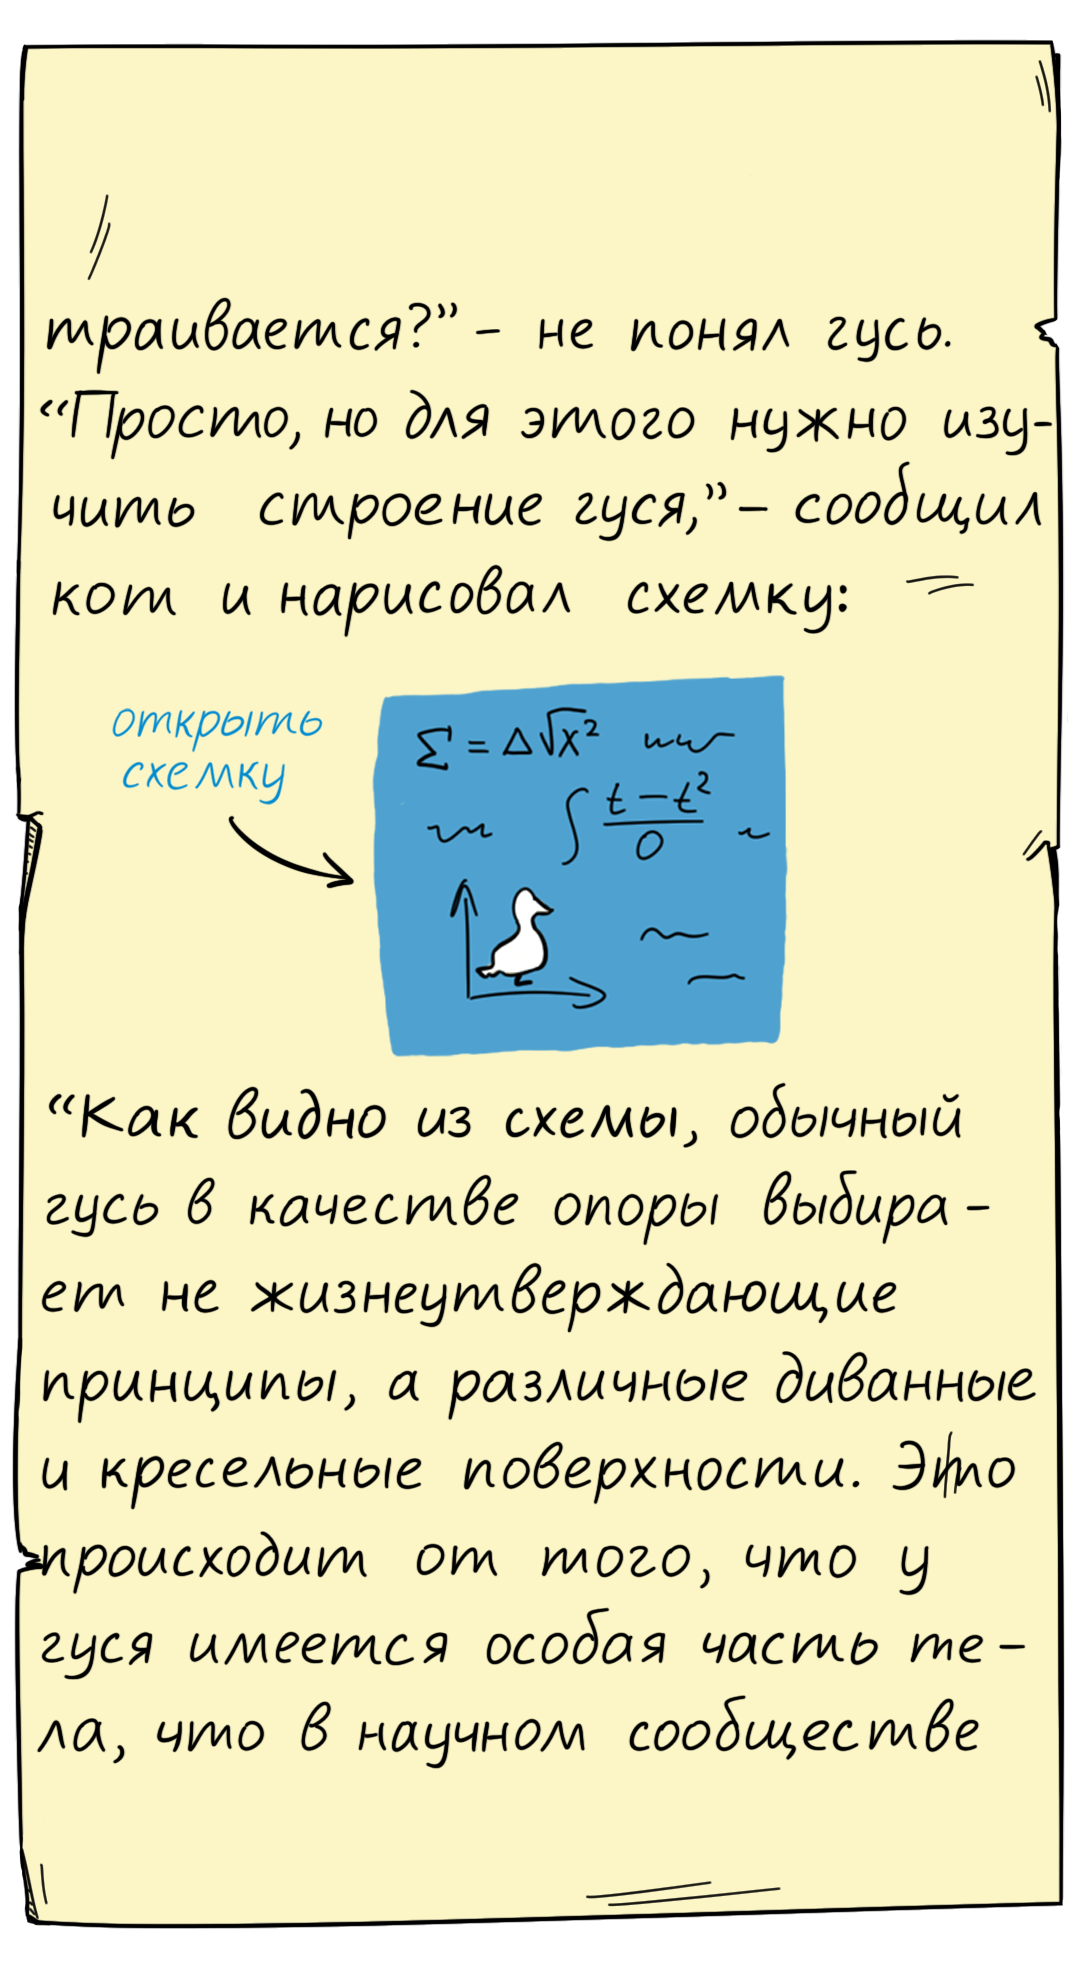 траивается?” – не понял гусь.
“Просто, но для этого нужно изу-
чить строение гуся,” – сообщил
кот и нарисовал схемку:
открыть
схемку
Σ = Δ√x²
∫ t – t² / 0
“Как видно из схемы, обычный
гусь в качестве опоры выбира-
ет не жизнеутверждающие
принципы, а различные диванные
и кресельные поверхности. Это
происходит от того, что у
гуся имеется особая часть те-
ла, что в научном сообществе